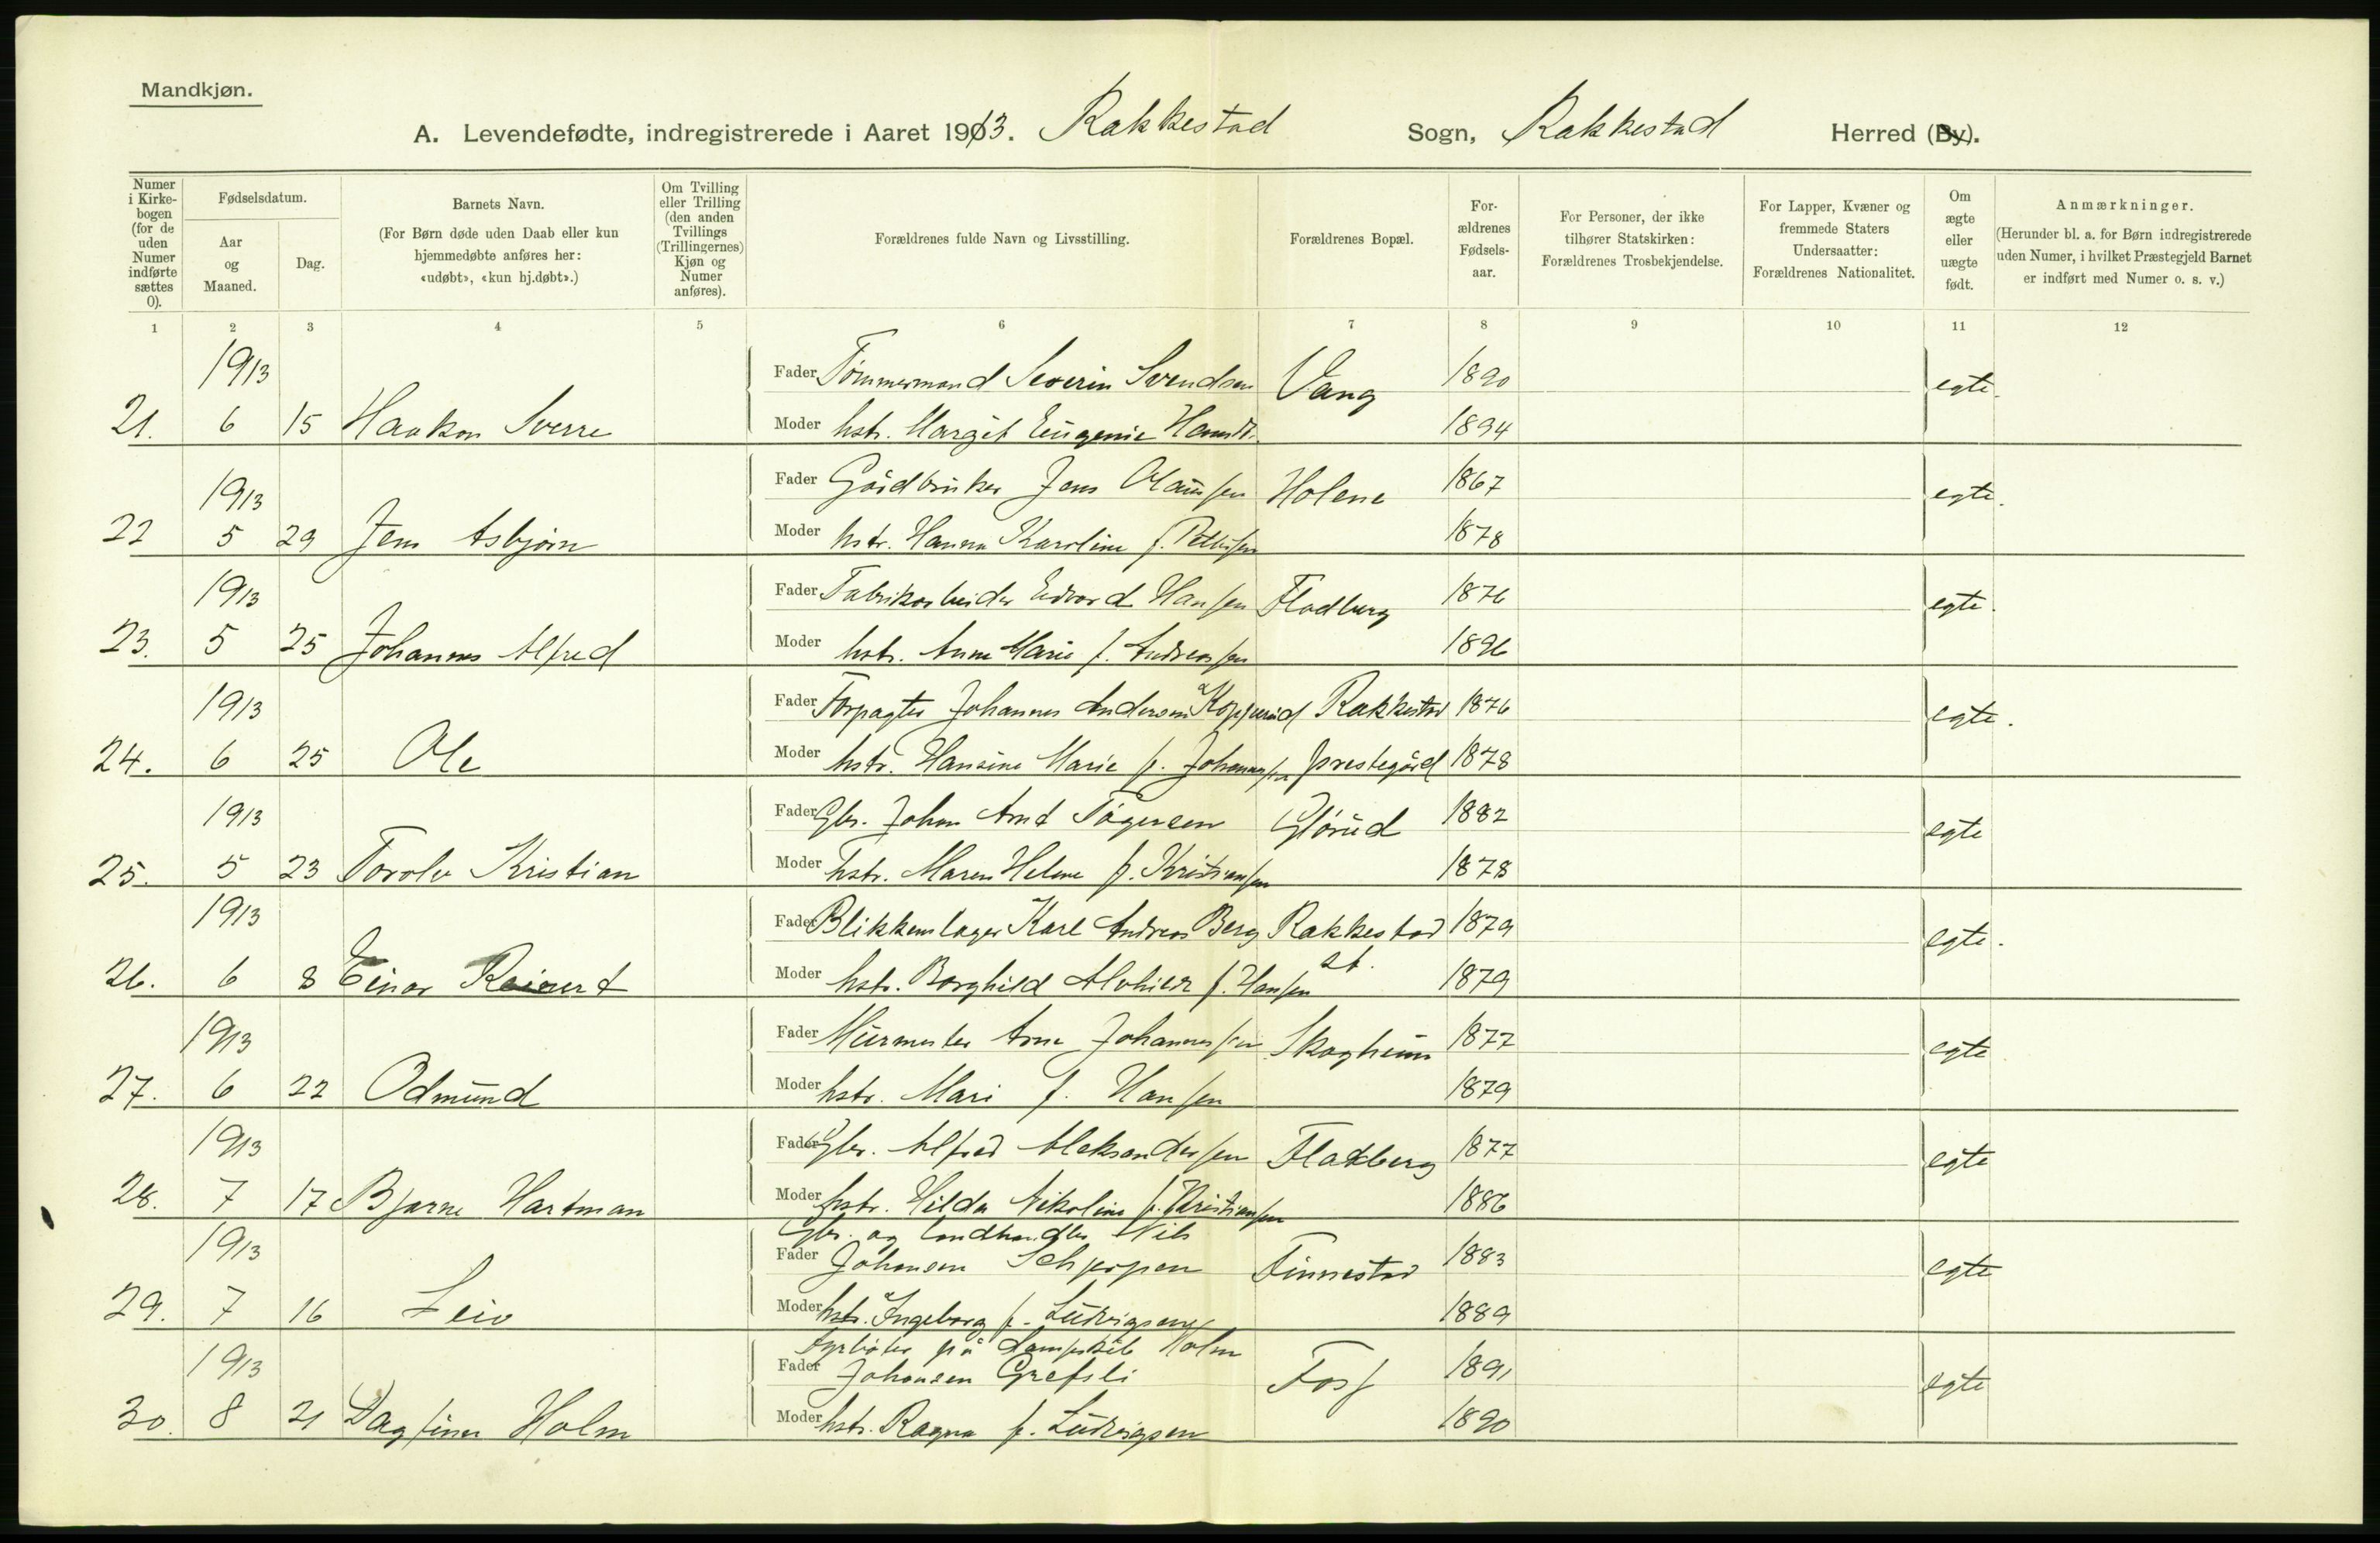 Mandkjøn.
A. Levendefødte, indregistrerede i Aaret 1913. Rakkestad Sogn, Rakkestad Herred (By).
Numer i Kirkebogen (for de uden Numer indførte sættes 0).
Fødselsdatum.
Aar og Maaned.
Dag.
Barnets Navn.
(For Børn døde uden Daab eller kun hjemmedøbte anføres her: «udøbt», «kun hj.døbt».)
Om Tvilling eller Trilling (den anden Tvillings (Trillingernes) Kjøn og Numer anføres).
Forældrenes fulde Navn og Livsstilling.
Forældrenes Bopæl.
Forældrenes Fødselsaar.
For Personer, der ikke tilhører Statskirken: Forældrenes Trosbekjendelse.
For Lapper, Kvæner og fremmede Staters Undersaatter: Forældrenes Nationalitet.
Om ægte eller uægte født.
Anmærkninger.
(Herunder bl. a. for Børn indregistrerede uden Numer, i hvilket Præstegjeld Barnet er indført med Numer o. s. v.)
1 2 3 4 5 6 7 8 9 10 11 12
1913 Fader Tømmermand Severin Svendsen Vang 1890 egte.
21. 6 15 Haakon Sverre Moder hstr. Margit Eugenie 1894
1913 Fader Gårdbruker Jens Olaussen Holene 1867 egte.
22 5 29 Jens Asbjørn Moder hstr. Hanna Karoline f. Pettersen 1878
1913 Fader Fabrikarbeider Edvard Hansen Fladberg 1876 egte.
23. 5 25 Johannes Alfred Moder hstr. Anne Marie f. Andreassen 1896
1913 Fader Forpagter Johannes Andersen Kopperud Rakkestad 1876 egte.
24. 6 25 Ole Moder hstr. Hansine Marie f. Johannessen prestegård 1878
1913 Fader Gbr. Johan Arnt Tågersen Glørud 1882 egte
25. 5 23 Torolv Kristian Moder hstr. Maren Helene f. Kristiansen 1878
1913 Fader Blikkenslager Karl Andreas Berg Rakkestad 1879 egte.
26. 6 8 Einar Reinert Moder hstr. Borghild Alvhilde f. Hansen st. 1879
1913 Fader Murmester Arne Johannessen Skogheim 1877 egte
27. 6 22 Odmund Moder hstr. Mari f. Hansen 1879
1913 Fader Gbr. Alfred Aleksandersen Fladberg 1877 egte
28. 7 17 Bjarne Hartman Moder hstr. Hilda Nikoline f. Kristiansen 1886
Gbr. og landhandler Nils
1913 Fader Johansen Schjerpen Finnestad 1883 egte
29. 7 16 Leiv Moder hstr. Ingeborg f. Ludvigsen 1889
Fyrbøter på Dampskib Holm
1913 Fader Johansen Grefsli Foss 1891 egte
30. 8 21 Dagfinn Holm Moder hstr. Ragna f. Ludvigsen 1890